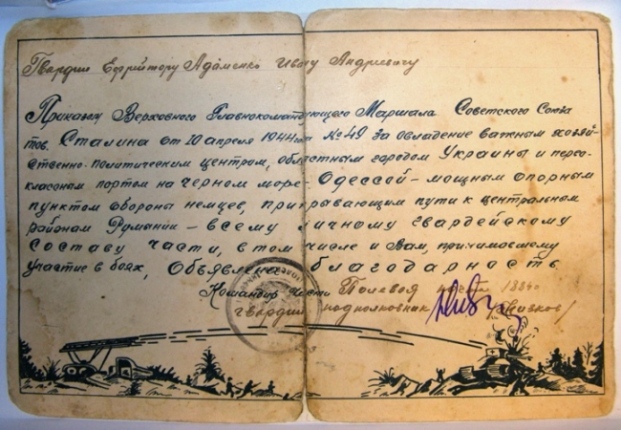 Гвардии Ефрейтору Адаменко Ивану Андреевичу
Приказом Верховного Главнокомандующего Маршала Советского Союза
тов. Сталина от 10 апреля 1944 года № 49 за овладение важным хозяй-
ственно-политическим центром, областным городом Украины и перво-
классным портом на черном море- Одессой-мощным опорным
пунктом обороны немцев, прикрывающим пути к центральным
районам Румынии-всему личному гвардейскому
составу части, в том числе и Вам, принимавшему
участие в боях, Объявлена благодарность
Командир части Полевая почта
гвардии подполковник